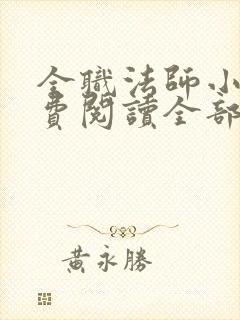 全職法師小
費閱讀全部
黃永勝